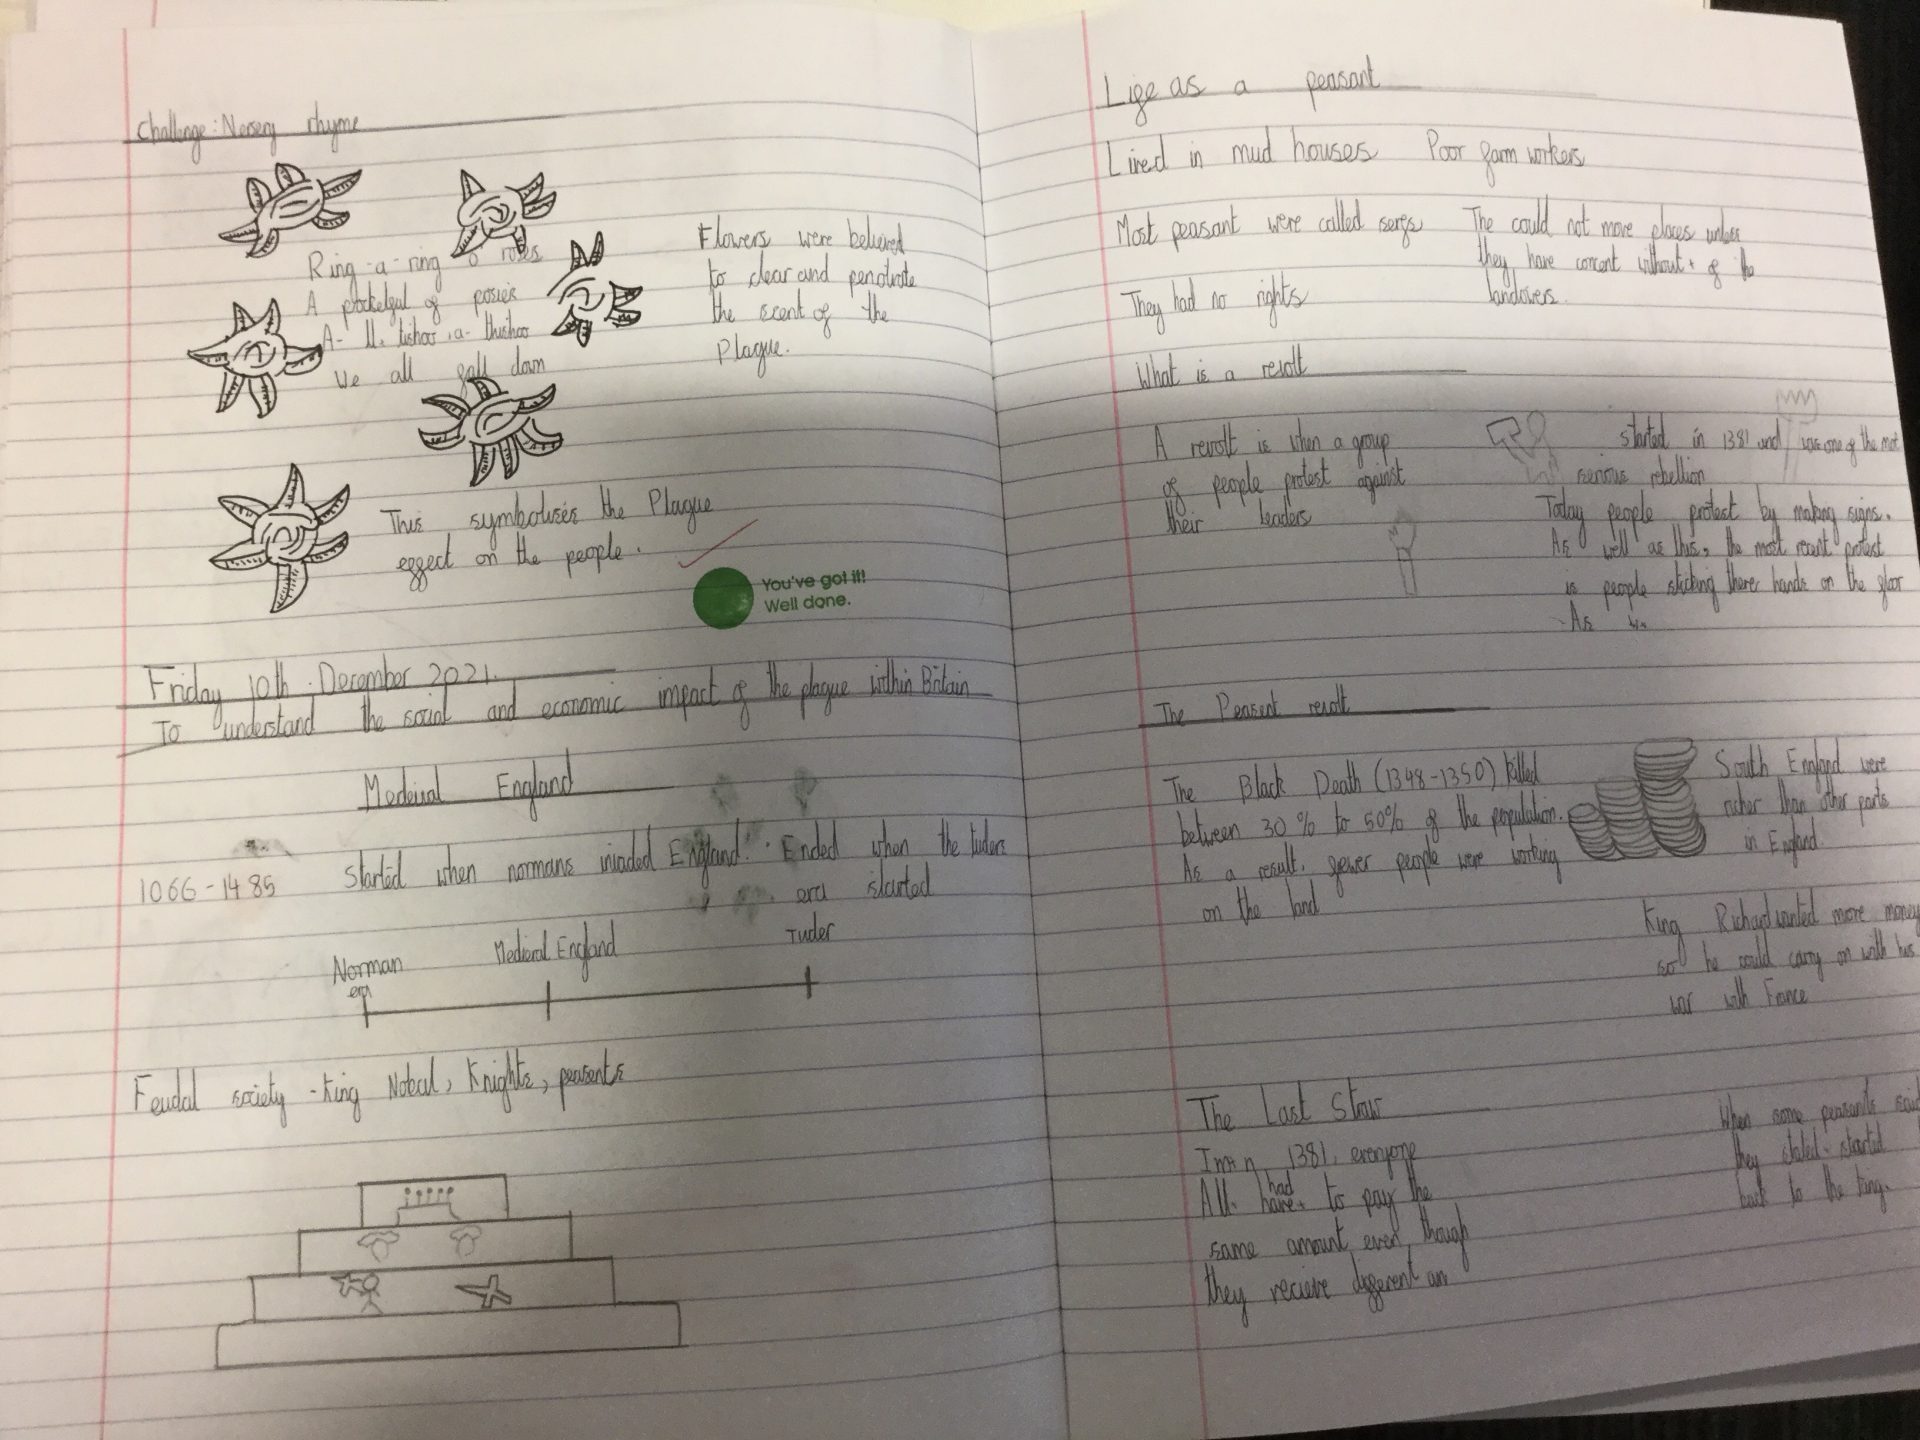 Challenge: Nersery rhyme
Ring-a-ring o' roses
A pocketful of posies
A- tishoo, a- thishoo
We all fall down
Flowers were believed
to clear and penotrate
the scent of the
Plague.
This symbolises the Plague
effect on the people.
You've got it!
Well done.
Friday 10th December 2021.
To understand the social and economic impact of the plague within Britain
Medeival England
1066-1485
Started when normans invaded England.
Ended when the tuders
era started
Norman
era
Medieval England
Tuder
Feudal society - King Nobal, Knights, peasents
Life as a peasant
Lived in mud houses
Poor farm workers
Most peasant were called serfs
The could not move places unless
they have concent without of the
landovers.
They had no rights
What is a revolt
A revolt is when a group
of people protest against
their leaders
started in 1381 and was one of the mot
serious rebellion
Today people protest by making signs.
As well as this, the most recent protest
is people sticking there hands on the floor
As
The Peasent revolt
The Black Death (1348-1350) killed
between 30% to 50% of the population.
As a result, fewer people were working
on the land
South England were
richer than other parts
in England.
King Richard wanted more money
so he could carry on with his
war with France
The Last Straw
In 1381, everyone
All had have to pay the
same amount even though
they recieve different am
When some peasants said
they stated - started
back to the king.